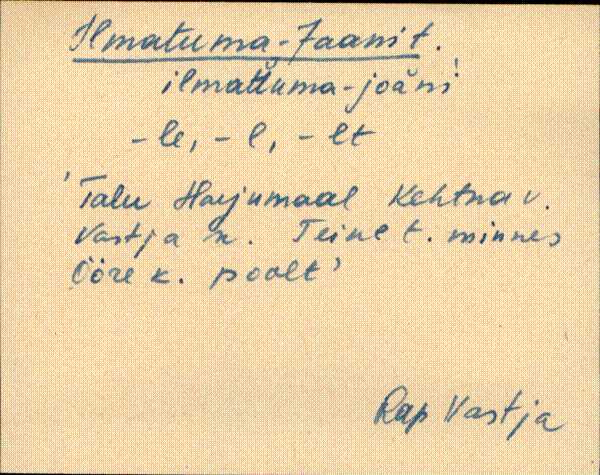 Ilmatuma-Jaani t.
ilmat̆tuma-joăni
-le, -l, -lt
'Talu Harjumaal Kehtna v.
Vastja k. Teine t. minnes
Ööre k. poolt'
Rap Vastja